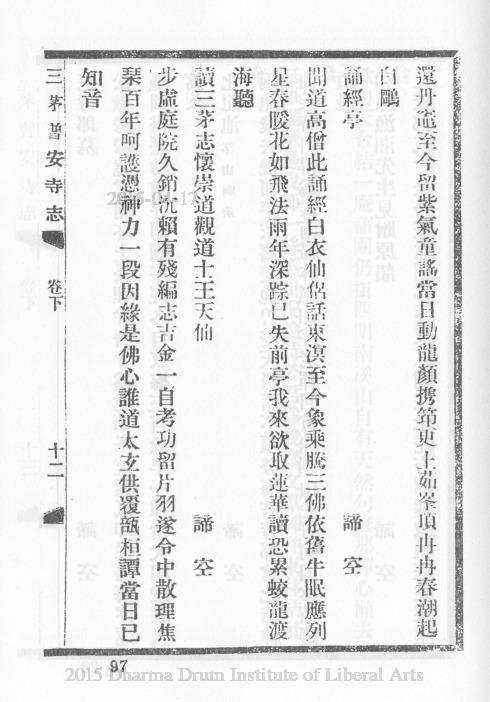 還丹竈至今留紫氣童謠當日動龍顏携笻更上茹峯頂冉冉春潮起
白鷗
誦經亭 諦空
聞道高僧此誦經白衣仙侶話東溟至今象乘騰三佛依舊牛眠應列
星春暖花如飛法雨年深踪已失前亭我來欲取蓮華讀恐累蛟龍渡
海聽
讀三茅志懷崇道觀道士王天仙 諦空
步虛庭院久銷沉賴有殘編志吉金一自考功留片羽遂令中散理焦
琹百年呵護憑神力一段因緣是佛心誰道太玄供覆瓿桓譚當日已
知音
三茅普安寺志 卷下 十二
2015-04-17
97
2015 Dharma Drum Institute of Liberal Arts